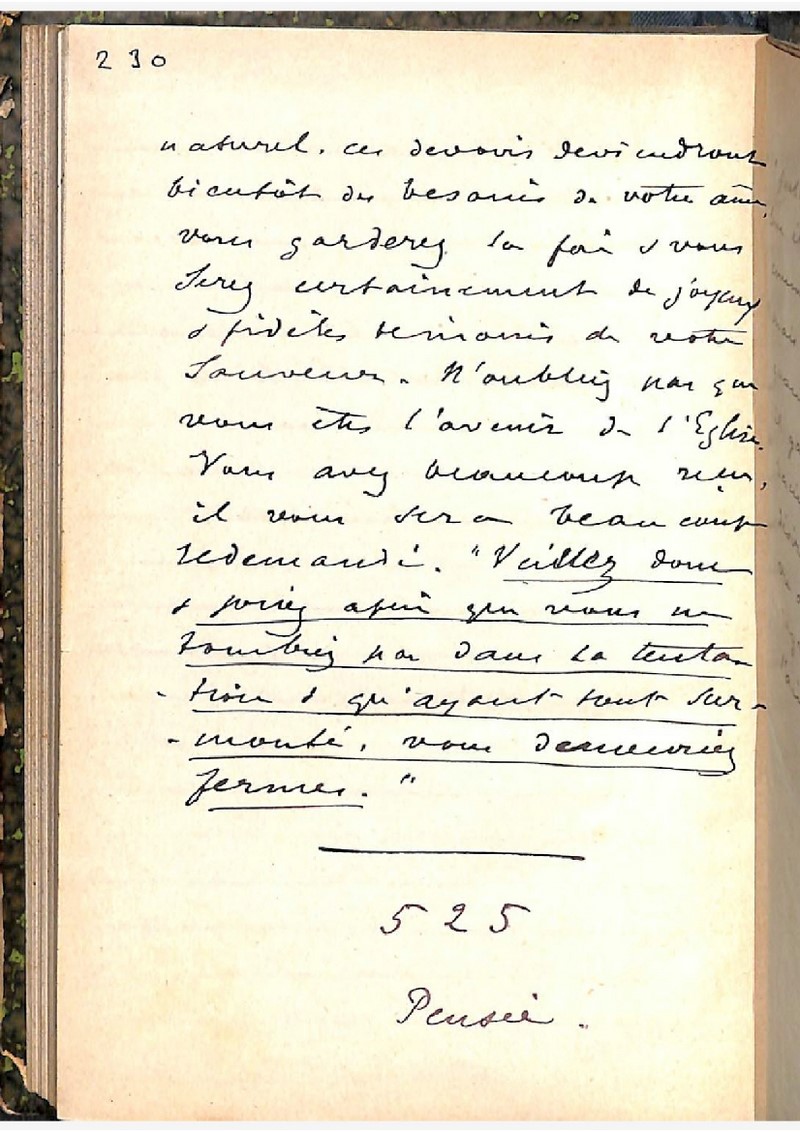 230
naturel. ces devoirs deviendront
bientôt des besoins de votre âme,
vous garderez la foi & vous
serez certainement de joyeux
& fidèles témoins de votre
Sauveur. N'oubliez pas que
vous êtes l'avenir de l'Eglise.
Vous avez beaucoup reçu,
il vous sera beaucoup
redemandé. "Veillez donc
& priez afin que vous ne
tombiez pas dans la tenta-
-tion & qu'ayant tout sur-
-monté, vous demeuriez
fermes."
525
Pensée.